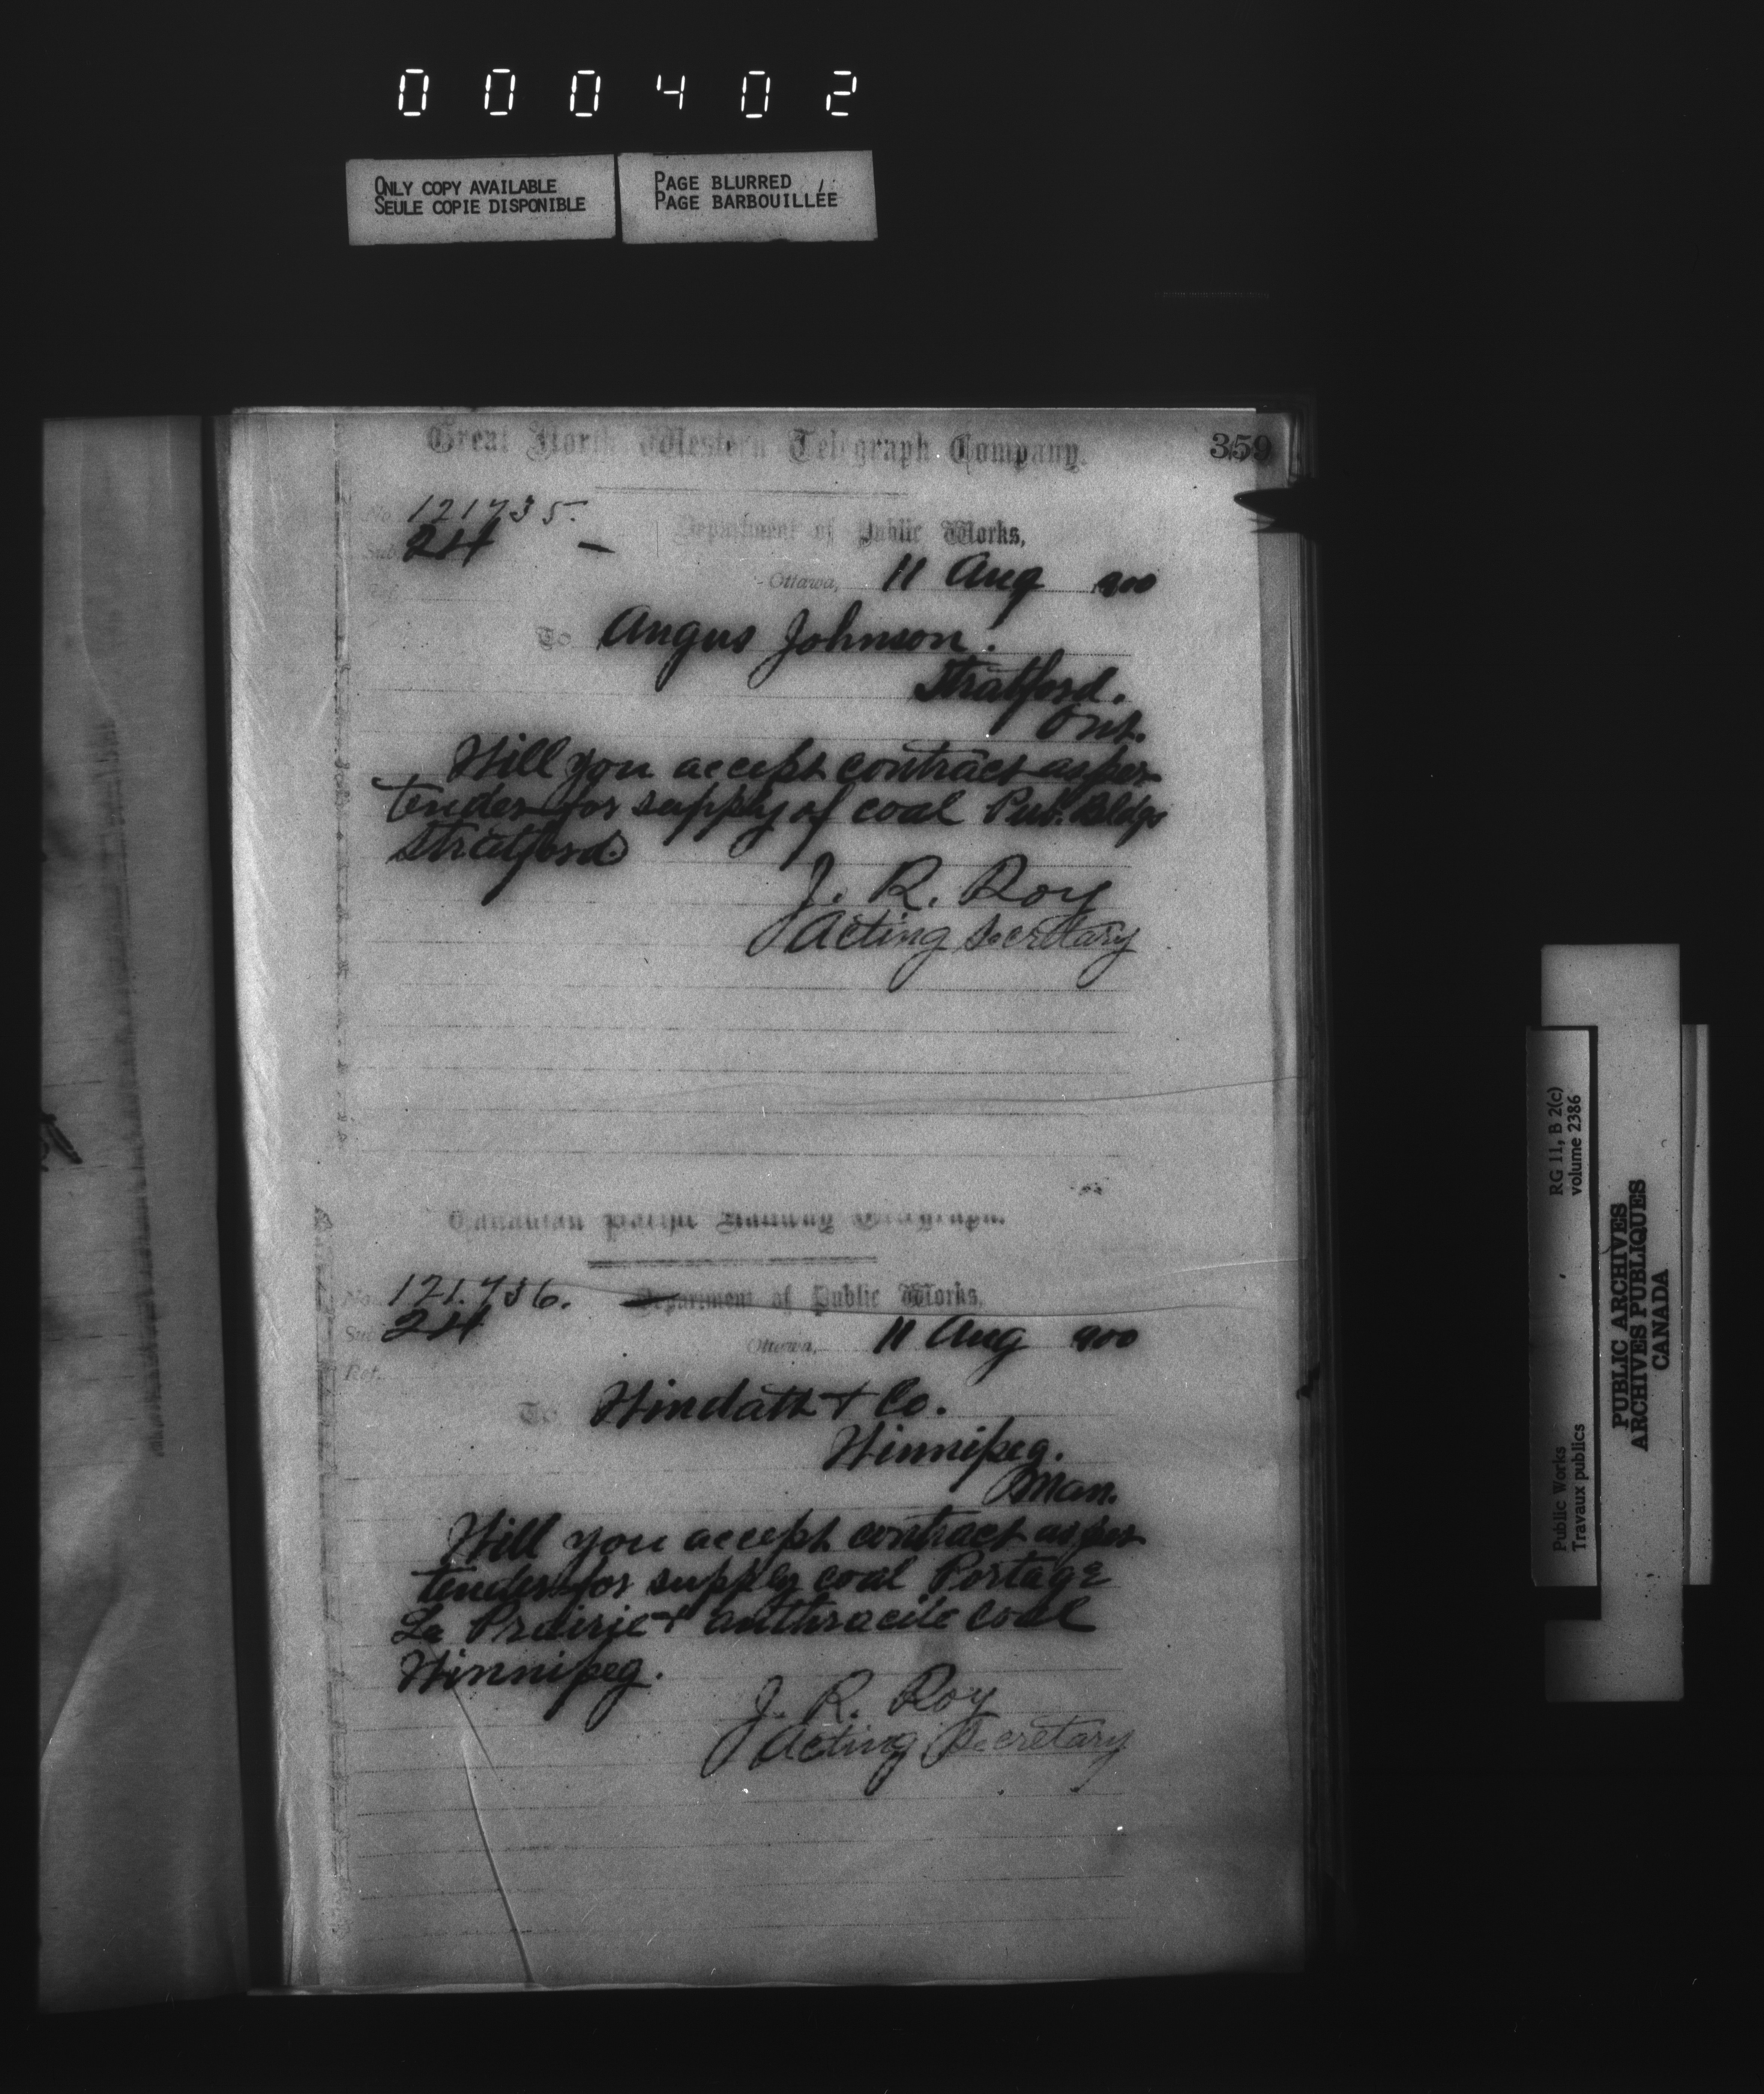 000402
ONLY COPY AVAILABLE
SEULE COPIE DISPONIBLE
PAGE BLURRED
PAGE BARBOUILLÉE
Great North Western Telegraph Company.
359
No. 121735.
Sub. 24 —
Department of Public Works,
Ref.
Ottawa, 11 Aug 1900
To Angus Johnson.
Stratford.
Ont.
Will you accept contract as per
tender for supply of coal Pub. Bldgs
Stratford
J. R. Roy
Acting Secretary
Canadian Pacific Railway Telegraph.
No. 121.736.
Department of Public Works,
Sub. 24
Ottawa, 11 Aug 900
Ref.
To & Co.
Winnipeg.
Man.
Will you accept contract as per
tender for supply coal Portage
La Prairie & anthracite coal
Winnipeg.
J. R. Roy
Acting Secretary
RG 11, B 2(c)
volume 2386
Public Works
Travaux publics
PUBLIC ARCHIVES
ARCHIVES PUBLIQUES
CANADA